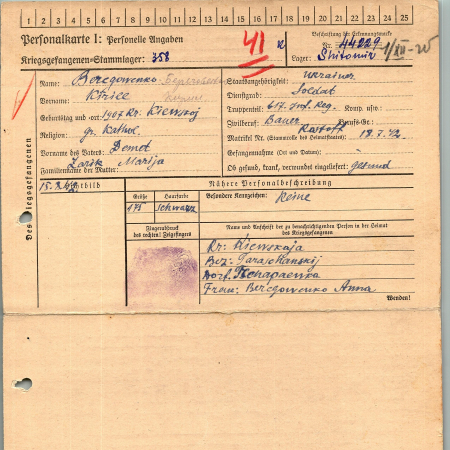 1 2 3 4 5 6 7 8 9 10 11 12 13 14 15 16 17 18 19 20 21 22 23 24 25
Personalkarte I: Personelle Angaben
Kriegsgefangenen-Stammlager: 358
41
Beschriftung der Erkennungsmarke
Nr. 44229
Lager: Shitomir
Des Kriegsgefangenen
Name: Beregowenko
Vorname: Kirill
Geburtstag und -ort 1907 Kr. Kiewskoj
Religion: gr. Kathol.
Vorname des Vaters: Demot
Familienname der Mutter: Marija
Staatsangehörigkeit: Ukrainer
Dienstgrad: Soldat
Truppenteil: 617. Inf. Reg. Kom. usw.:
Zivilberuf: Bauer Berufs-Gr.:
Matrikel Nr. (Stammrolle des Heimatstaates): 18.7.42
Gefangennahme (Ort und Datum):
Ob gesund, krank, verwundet eingeliefert: gesund
Lichtbild
Nähere Personalbeschreibung
Größe Haarfarbe
175 Schwarz
Besondere Kennzeichen: Keine
Fingerabdruck
des rechten! Zeigefingers
Name und Anschrift der zu benachrichtigenden Person in der Heimat
des Kriegsgefangenen
Kr: Kiewskaja
Bez: Taraschanskij
Frau: Beregowenko Anna
Wenden!